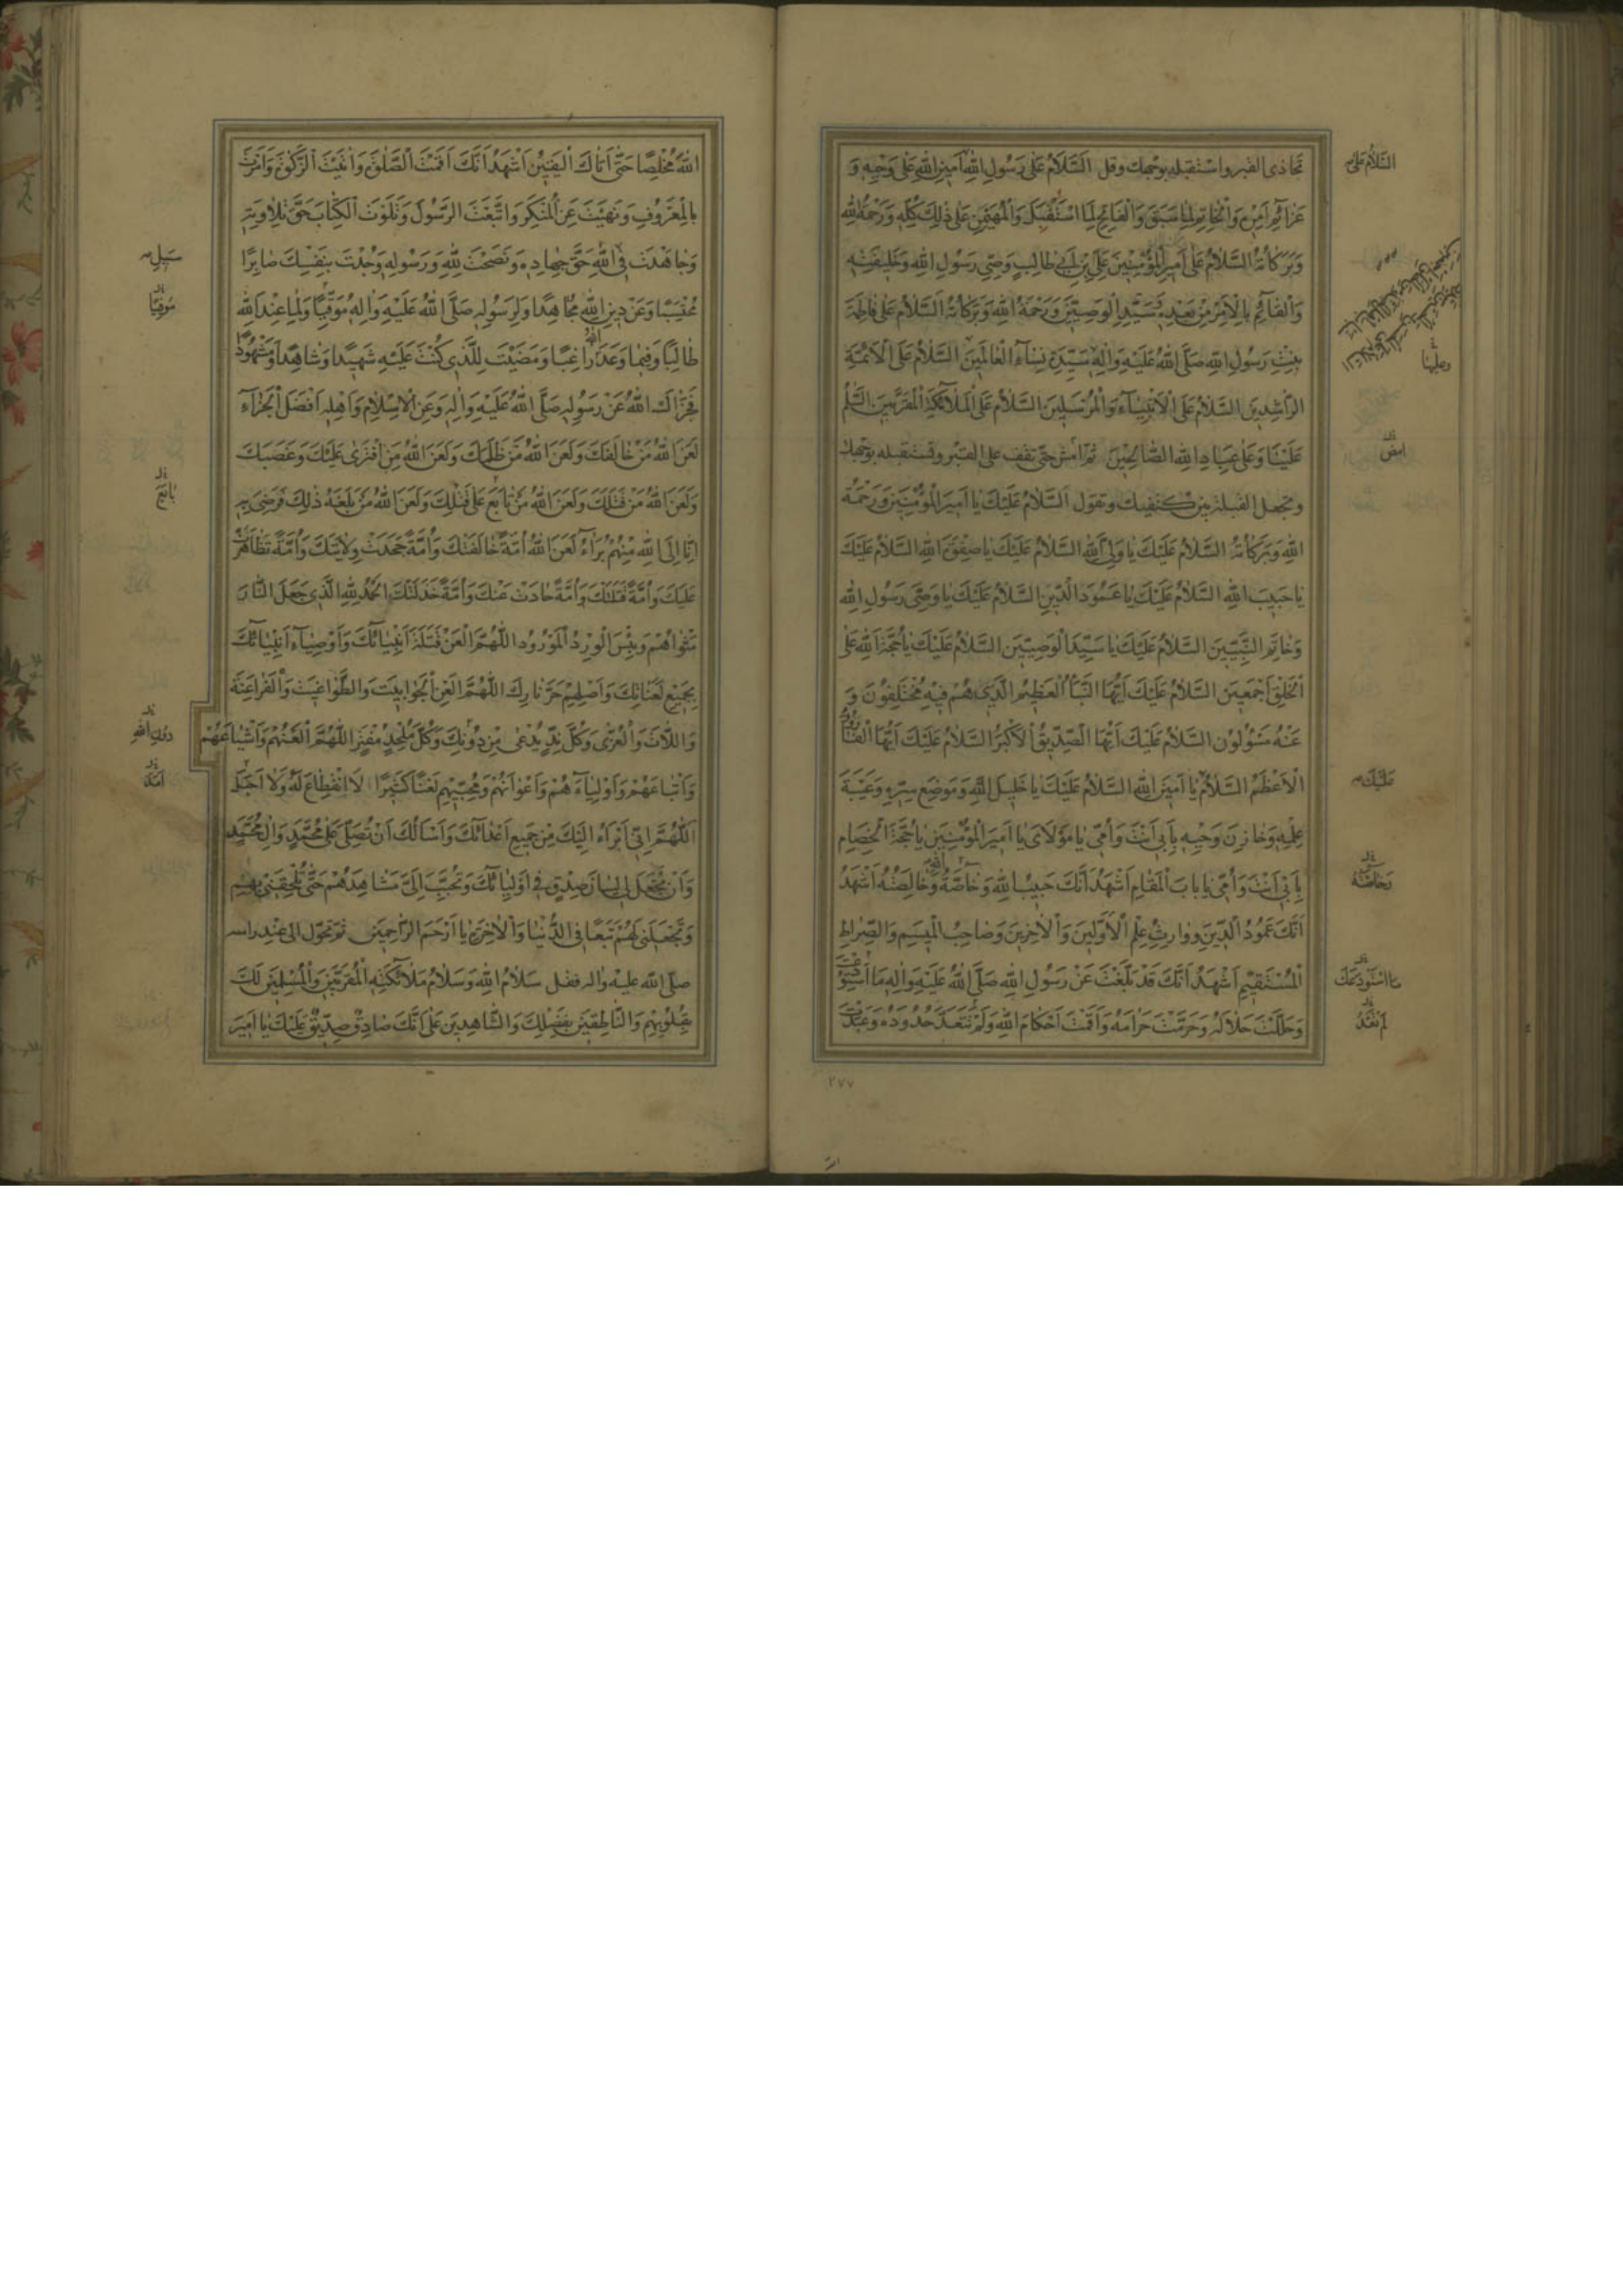 تُحاذي القبر واستقبله بوجهك وقل اَلسَّلامُ عَلى رَسُولِ اللهِ اَمينِ اللهِ عَلى وَحْيِهِ وَ
عَزائِمِ اَمْرِهِ وَالْخاتِمِ لِما سَبَقَ وَالْفاتِحِ لِمَا اسْتُقْبِلَ وَالْمُهَيْمِنِ عَلى ذلِكَ كُلِّهِ وَرَحْمَةُ اللهِ
وَبَرَكاتُهُ السَّلامُ عَلى اَميرِ الْمُؤْمِنينَ عَلِيِّ بْنِ اَبي طالِبٍ وَصِيِّ رَسُولِ اللهِ وَخَليفَتِهِ
وَالْقائِمِ بِالْاَمْرِ مِنْ بَعْدِهِ سَيِّدِ الْوَصِيّينَ وَرَحْمَةُ اللهِ وَبَرَكاتُهُ اَلسَّلامُ عَلى فاطِمَةَ
بِنْتِ رَسُولِ اللهِ صَلَّى اللهُ عَلَيْهِ وَالِهِ سَيِّدَةِ نِساءِ الْعالَمينَ السَّلامُ عَلَى الْاَئِمَّةِ
الرّاشِدينَ السَّلامُ عَلَى الْاَنْبِياءِ وَالْمُرْسَلينَ السَّلامُ عَلَى الْمَلائِكَةِ الْمُقَرَّبينَ السَّلامُ
عَلَيْنا وَعَلى عِبادِ اللهِ الصّالِحينَ ثمّ امش حتّى تقف على القبر وتستقبله بوجهك
وتجعل القبلة بين كتفيك وتقول اَلسَّلامُ عَلَيْكَ يا اَميرَ الْمُؤْمِنينَ وَرَحْمَةُ
اللهِ وَبَرَكاتُهُ السَّلامُ عَلَيْكَ يا وَلِيَّ اللهِ السَّلامُ عَلَيْكَ يا صَفْوَةَ اللهِ السَّلامُ عَلَيْكَ
يا حَبيبَ اللهِ السَّلامُ عَلَيْكَ يا عَمُودَ الدّينِ السَّلامُ عَلَيْكَ يا وَصِيَّ رَسُولِ اللهِ
وَخاتَمِ النَّبِيّينَ السَّلامُ عَلَيْكَ يا سَيِّدَ الْوَصِيّينَ السَّلامُ عَلَيْكَ يا حُجَّةَ اللهِ عَلَى
الْخَلْقِ اَجْمَعينَ السَّلامُ عَلَيْكَ اَيُّهَا النَّبَأُ الْعَظيمُ الَّذي هُمْ فيهِ مُخْتَلِفُونَ وَ
عَنْهُ مَسْؤُلُونَ السَّلامُ عَلَيْكَ اَيُّهَا الصِّدّيقُ الْاَكْبَرُ السَّلامُ عَلَيْكَ اَيُّهَا الْفارُوقُ
الْاَعْظَمُ السَّلامُ يا اَمينَ اللهِ السَّلامُ عَلَيْكَ يا خَليلَ اللهِ وَمَوْضِعَ سِرِّهِ وَعَيْبَةَ
عِلْمِهِ وَخازِنَ وَحْيِهِ بِاَبي اَنْتَ وَاُمّي يا مَوْلايَ يا اَميرَ الْمُؤْمِنينَ يا حُجَّةَ الْخِصامِ
بِاَبي اَنْتَ وَاُمّي يا بابَ الْمَقامِ اَشْهَدُ اَنَّكَ حَبيبُ اللهِ وَخاصَّةُ اللهِ وَخالِصَتُهُ اَشْهَدُ
اَنَّكَ عَمُودُ الدّينِ وَوارِثُ عِلْمِ الْاَوَّلينَ وَالْاخِرينَ وَصاحِبُ الْميسَمِ وَالصِّراطِ
الْمُسْتَقيمِ اَشْهَدُ اَنَّكَ قَدْ بَلَّغْتَ عَنْ رَسُولِ اللهِ صَلَّى اللهُ عَلَيْهِ وَالِهِ مَا اسْتُودِعْتَ
وَحَلَّلْتَ حَلالَهُ وَحَرَّمْتَ حَرامَهُ وَاَقَمْتَ اَحْكامَ اللهِ وَلَمْ تَتَعَدَّ حُدُودَهُ وَعَبَدْتَ
السَّلامُ عَلى
وعليها
امض
عَلَيْكَ
وَخاصَّتُهُ
مَا اسْتَوْدَعَكَ
٢٧٧
اللهَ مُخْلِصًا حَتّى اَتاكَ الْيَقينُ اَشْهَدُ اَنَّكَ اَقَمْتَ الصَّلوةَ وَاتَيْتَ الزَّكوةَ وَاَمَرْتَ
بِالْمَعْرُوفِ وَنَهَيْتَ عَنِ الْمُنْكَرِ وَاتَّبَعْتَ الرَّسُولَ وَتَلَوْتَ الْكِتابَ حَقَّ تِلاوَتِهِ
وَجاهَدْتَ فِي اللهِ حَقَّ جِهادِهِ وَنَصَحْتَ لِلّهِ وَرَسُولِهِ وَجُدْتَ بِنَفْسِكَ صابِرًا
مُحْتَسِبًا وَعَنْ دينِ اللهِ مُجاهِدًا وَلِرَسُولِهِ صَلَّى اللهُ عَلَيْهِ وَالِهِ مُوَقِّيًا وَلِما عِنْدَ اللهِ
طالِبًا وَفيما وَعَدَ اللهُ راغِبًا وَمَضَيْتَ لِلَّذي كُنْتَ عَلَيْهِ شَهيدًا وَشاهِدًا وَمَشْهُودًا
فَجَزاكَ اللهُ عَنْ رَسُولِهِ صَلَّى اللهُ عَلَيْهِ وَالِهِ وَعَنِ الْاِسْلامِ وَاَهْلِهِ اَفْضَلَ الْجَزاءِ
لَعَنَ اللهُ مَنْ خالَفَكَ وَلَعَنَ اللهُ مَنْ ظَلَمَكَ وَلَعَنَ اللهُ مَنِ افْتَرى عَلَيْكَ وَغَصَبَكَ
وَلَعَنَ اللهُ مَنْ قَتَلَكَ وَلَعَنَ اللهُ مَنْ تابَعَ عَلى قَتْلِكَ وَلَعَنَ اللهُ مَنْ بَلَغَهُ ذلِكَ فَرَضِيَ بِهِ
اِنّا اِلَى اللهِ مِنْهُمْ بَراءُ لَعَنَ اللهُ اُمَّةً خالَفَتْكَ وَاُمَّةً جَحَدَتْ وِلايَتَكَ وَاُمَّةً تَظاهَرَتْ
عَلَيْكَ وَاُمَّةً قَتَلَتْكَ وَاُمَّةً حادَتْ عَنْكَ وَاُمَّةً خَذَلَتْكَ الْحَمْدُ لِلّهِ الَّذي جَعَلَ النّارَ
مَثْواهُمْ وَبِئْسَ الْوِرْدُ الْمَوْرُودُ اللّهُمَّ الْعَنْ قَتَلَةَ اَنْبِيائِكَ وَاَوْصِياءِ اَنْبِيائِكَ
بِجَميعِ لَعَناتِكَ وَاَصْلِهِمْ حَرَّ نارِكَ اللّهُمَّ الْعَنِ الْجَوابيتَ وَالطَّواغيتَ وَالْفَراعِنَةَ
وَاللّاتَ وَالْعُزّى وَكُلَّ نِدٍّ يُدْعى مِنْ دُونِكَ وَكُلَّ مُلْحِدٍ مُفْتَرٍ اللّهُمَّ الْعَنْهُمْ وَاَشْياعَهُمْ
وَاَتْباعَهُمْ وَاَوْلِياءَهُمْ وَاَعْوانَهُمْ وَمُحِبّيهِمْ لَعْنًا كَثيرًا لَا انْقِطاعَ لَهُ وَلا اَجَلَ
اَللّهُمَّ اِنّي اَبْرَاُ اِلَيْكَ مِنْ جَميعِ اَعْدائِكَ وَاَسْاَلُكَ اَنْ تُصَلِّيَ عَلى مُحَمَّدٍ وَالِ مُحَمَّدٍ
وَاَنْ تَجْعَلَ لي لِسانَ صِدْقٍ في اَوْلِيائِكَ وَتُحَبِّبَ اِلَيَّ مَشاهِدَهُمْ حَتّى تُلْحِقَني بِهِمْ
وَتَجْعَلَني لَهُمْ تَبَعًا فِي الدُّنْيا وَالْاخِرَةِ يا اَرْحَمَ الرّاحِمينَ ثمّ تحوّل الى عند راسه
صلّى الله عليه واله فقل سَلامُ اللهِ وَسَلامُ مَلائِكَتِهِ الْمُقَرَّبينَ وَالْمُسَلِّمينَ لَكَ
بِقُلُوبِهِمْ وَالنّاطِقينَ بِفَضْلِكَ وَالشّاهِدينَ عَلى اَنَّكَ صادِقٌ صِدّيقٌ عَلَيْكَ يا اَميرَ
سَبيلِ
مُوفِيًا
بايَعَ
دُونِ اللهِ
اَمَدَ